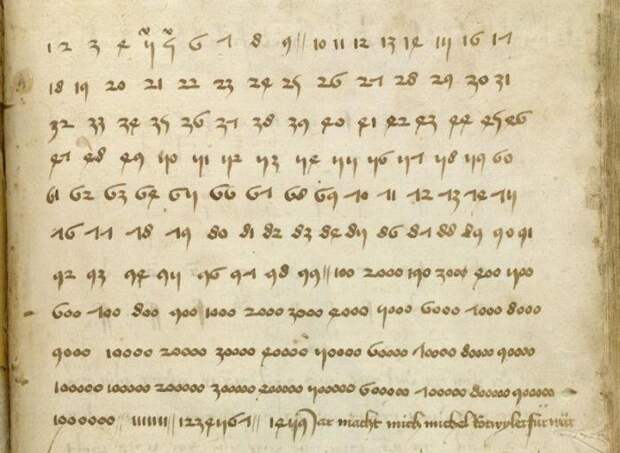 1 2 3 4 5 5 6 7 8 9 // 10 11 12 13 14 15 16 17
18 19 20 21 22 23 24 25 26 27 28 29 30 31
32 33 34 35 36 37 38 39 40 41 42 43 44 45 46
47 48 49 50 51 52 53 54 55 56 57 58 59 60
61 62 63 64 65 66 67 68 69 70 71 72 73 74 75
76 77 78 79 80 81 82 83 84 85 86 87 88 89 90 91
92 93 94 95 96 97 98 99 // 100 2000 190 3000 400 500
600 700 800 900 1000 2000 3000 4000 5000 6000 7000 8000
9000 10000 20000 30000 40000 50000 60000 70000 80000 90000
100000 100000 200000 300000 400000 500000 600000 700000 800000 900000
1000000 // 1111111 // 1234567 // 1459 Jar macht mich michel Rotwyler für